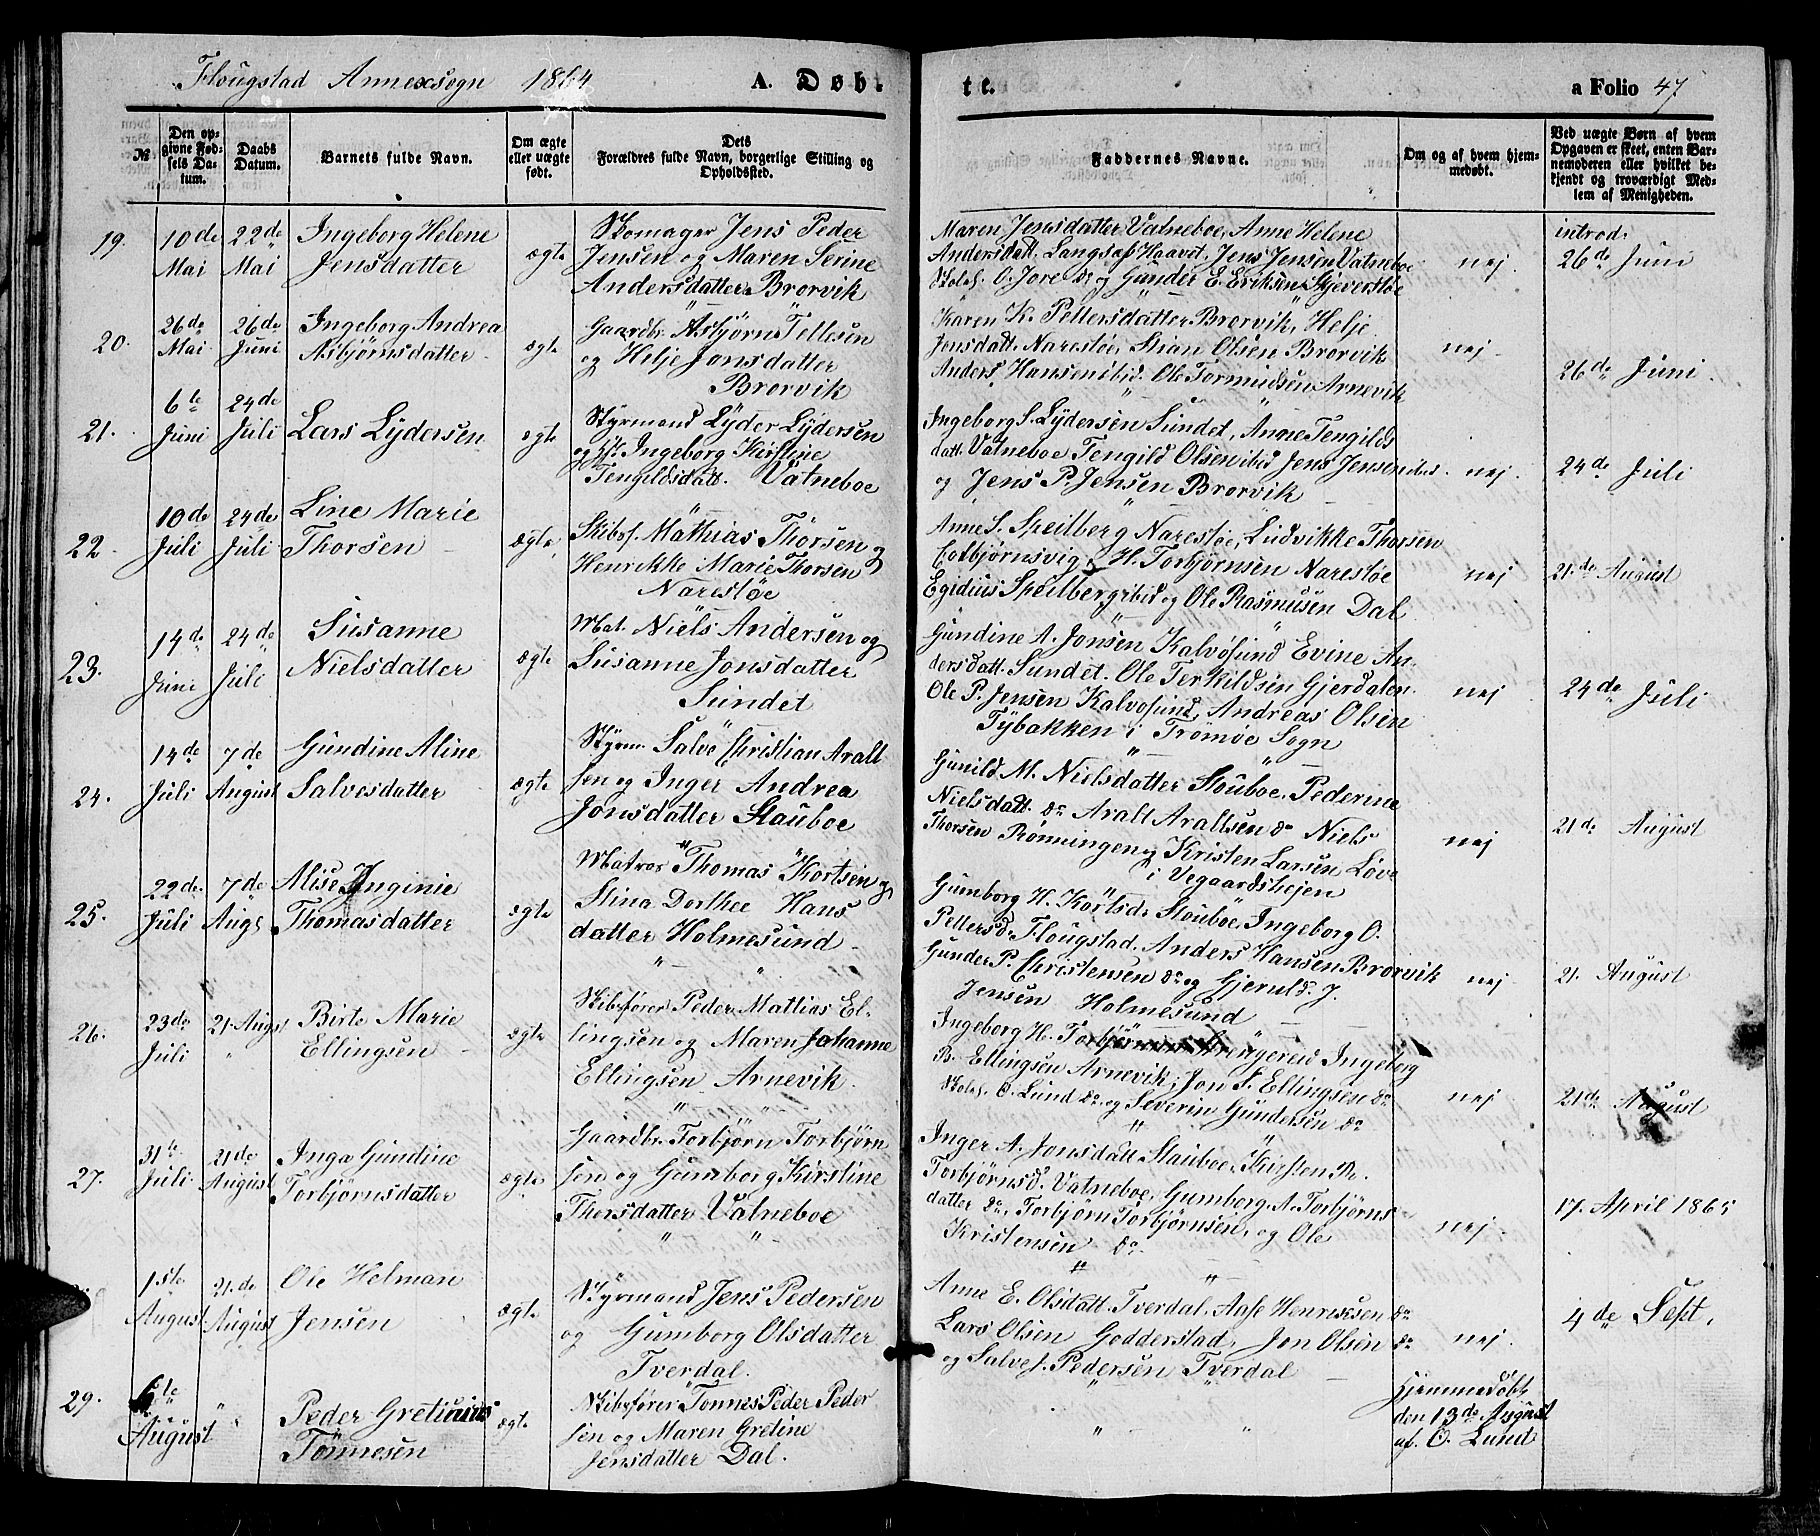 Flougstad Annexsogn 1864 A. Døb- te. a Folio 47.
№ Den opgivne Fødsels Datum. Daabs Datum. Barnets fulde Navn. Om ægte eller uægte født. Dets Forældres fulde Navn, borgerlige Stilling og Opholdssted. Faddernes Navne. Om og af hvem hjemmedøbt. Ved uægte Børn af hvem Opgaven er skeet, enten Barnemoderen eller hvilket bekjendt og troværdigt Medlem af Menigheden.
19. 10de Mai 22de Mai Ingeborg Helene
Jensdatter ægte
Skomager Jens Peder
Jensen og Maren Serine
Andersdatter Brorvik
Maren Jensdatter Vatneboe, Anne Helene
Andersdatt. Langsæ Haavet, Jens Jensen Vatneboe
Skolel. O. Jore do og Gunder E. Eriksen Skjeverstøe
nej. introd. 26de Juni
20. 26de Mai 26de Juni Ingeborg Andrea
Asbjörnsdatter ægte
Gaardbr. Asbjörn Tellesen
og Helje Jonsdatter
Brorvik
Karen K. Pettersdatter Brorvik, Helje
Jonsdatt. Narestøe, Stian Olsen Brorvik
Anders Hansen ibid. Ole Tormundsen Arnevik
nej. 26de Juni.
21. 6te Juni 24de Juli Lars Lydersen ægte
Styrmand Lyder Lydersen
og H. Ingeborg Kirstine
Tengildsdatt. Vatneboe
Ingeborg S. Lydersen Sundet, Anne Tengilds
datt. Vatneboe Tengild Olsen ibid Jens Jensen ibid.
og Jens P. Jensen Brorvik
nej. 24de Juli
22. 10de Juli 24de Juli Line Marie
Thorsen ægte
Skibsf. Mathias Thorsen og
Henrikke Marie Thorsen
Narestöe
Anne S. Speilberg Narestöe, Ludvikke Thorsen
Cotbjørnsvig, H. Torbjörnsen Narestöe
Egidius Speilberg ibid og Ole Rasmusen Dal
nej 21de August
23. 14de Juni 24de Juli Susanne
Nielsdatter ægte
Mat. Niels Andersen og
Susanne Jonsdatter
Sundet
Gundine A. Jonsen Kalvøsund Evine An-
dersdatt. Sundet. Ole Terkildsen Gjerdalen
Ole P. Jensen Kalvøsund, Andreas Olsen
Tybakken i Tromöe Sogn
nej 24de Juli
24. 14de Juli 7de August Gundine Aline
Salvesdatter ægte
Styrm. Salve Christian Aralt
sen og Inger Andrea
Jonsdatter Stauboe
Gunild M. Nielsdatter Stouboe, Pederine
Nielsdatt. do Aralt Araltsen do Niels
Thorsen Rönningen og Kristen Larsen Löve
i Vegaardsheien
nej 21de August
25. 22de Juli 7de Augs Alise Inginie
Thomasdatter ægte
Matros Thomas Kortsen og
Stina Dorthee Hans
datter Holmesund
Gumborg H. Kortsd. Stouboe, Ingeborg O.
Pettersd. Flougstad. Anders Hansen Brorvik
Gunder P. Christensen do og Gjeruld J.
Jensen Holmesund
nej. 21. August
26. 23de Juli 21. Augst Birte Marie
Ellingsen ægte
Skibsfører Peder Mattias El-
lingsen og Maren Johanne
Ellingsen Arnevik.
Ingeborg H. Strengereid Ingeborg
B. Ellingsen Arnevik, Jon S. Ellingsen do
Skolel. O. Lund do. og Severin Gundersen do
nej 21de August
27. 31te Juli 21de August Inga Gundine
Torbjörnsdatter ægte
Gaardbr. Torbjörn Torbjörn
sen og Gumborg Kirstine
Thorsdatter Vatneboe
Inger A. Jonsdatt Stauboe, Kirsten M.
Torbjörnsd. Vatneboe, Gumborg A. Torbjörns
datter do, Torbjörn Torbjörnsen, og Ole
Kristensen do
nej. 17. April 1865
1ste August 21de August Ole Helman
Jensen ægte
Styrmand Jens Pedersen
og Gumborg Olsdatter
Tverdal.
Anne E. Olsdatt. Tverdal, Aase Henriksen do
Lars Olsen Godderstad, Jon Olsen do
og Salve J. Pedersen Tverdal
nej. 4de Sept.
29. 6te August " Peder Gretinius
Tönnesen ægte
Skibsfører Tönnes Peder Peder
sen og Maren Gretine
Jensdatter Dal.
" "
Hjemmedöbt
den 13de August
af O. Lund